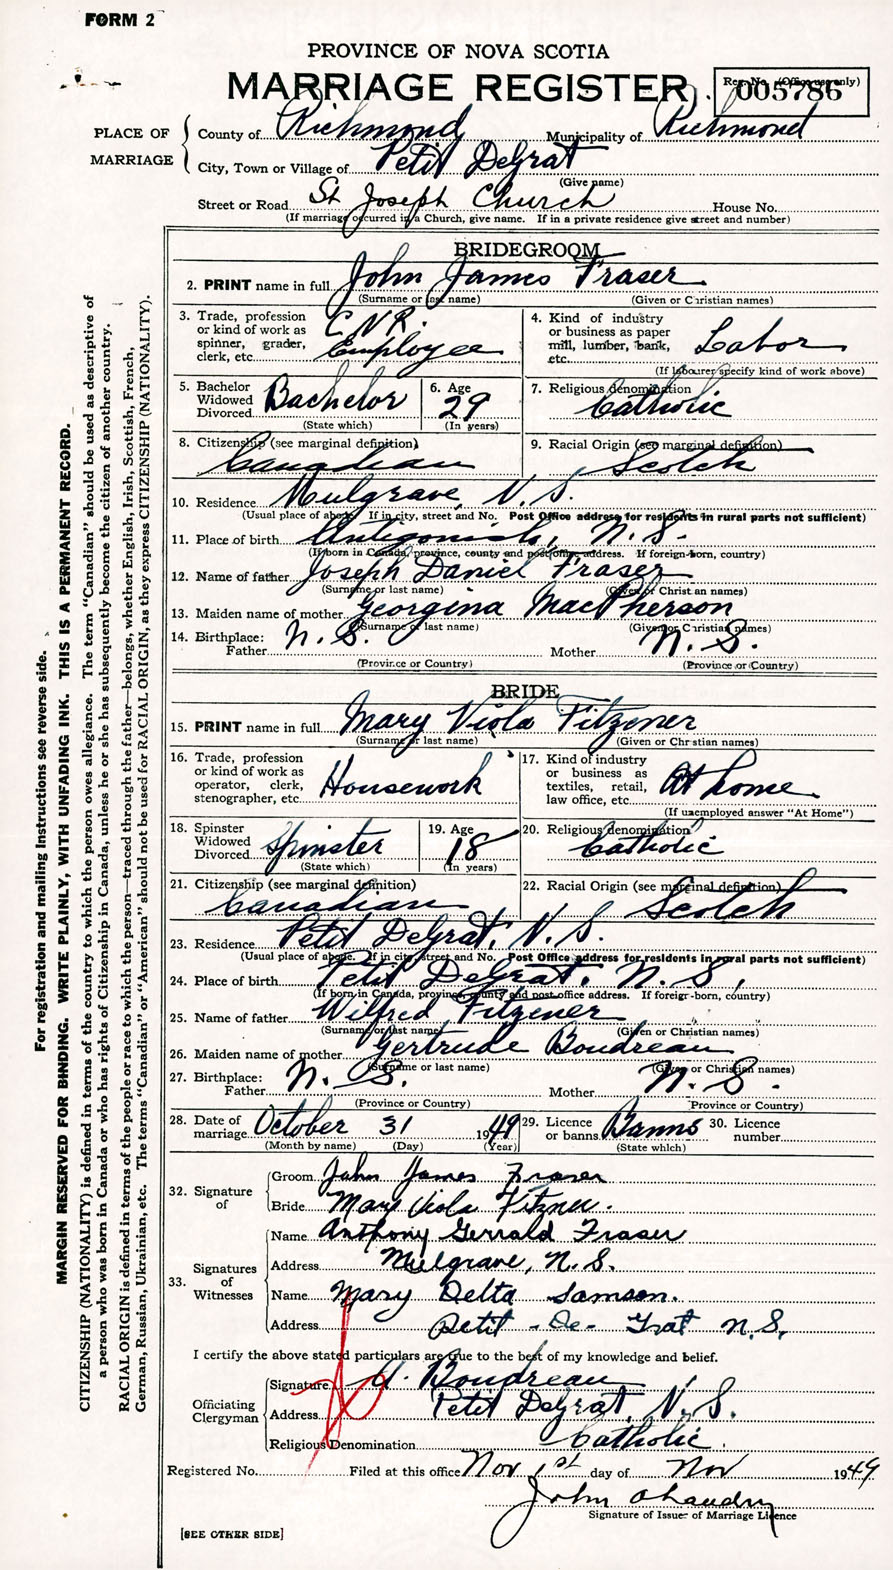 FORM 2
PROVINCE OF NOVA SCOTIA
MARRIAGE REGISTER
Reg. No. (Office use only)
005786
PLACE OF MARRIAGE
County of Richmond Municipality of Richmond
City, Town or Village of Petit DeGrat
(Give name)
Street or Road St Joseph Church House No.
(If marriage occurred in a Church, give name. If in a private residence give street and number)
BRIDEGROOM
2. PRINT name in full John James Fraser
(Surname or last name) (Given or Christian names)
3. Trade, profession or kind of work as spinner, grader, clerk, etc. C.N.R. Employee
4. Kind of industry or business as paper mill, lumber, bank, etc. Labor
(If labourer specify kind of work above)
5. Bachelor Widowed Divorced Bachelor
(State which)
6. Age 29
(In years)
7. Religious denomination Catholic
8. Citizenship (see marginal definition) Canadian
9. Racial Origin (see marginal definition) Scotch
10. Residence Mulgrave, N.S.
(Usual place of abode. If in city, street and No. Post Office address for residents in rural parts not sufficient)
11. Place of birth Antigonish, N.S.
(If born in Canada, province, county and post office address. If foreign-born, country)
12. Name of father Joseph Daniel Fraser
(Surname or last name) (Given or Christian names)
13. Maiden name of mother Georgina MacPherson
(Surname or last name) (Given or Christian names)
14. Birthplace: Father N.S. Mother N.S.
(Province or Country) (Province or Country)
BRIDE
15. PRINT name in full Mary Viola Fitzener
(Surname or last name) (Given or Christian names)
16. Trade, profession or kind of work as operator, clerk, stenographer, etc. Housework
17. Kind of industry or business as textiles, retail, law office, etc. At home
(If unemployed answer "At Home")
18. Spinster Widowed Divorced Spinster
(State which)
19. Age 18
(In years)
20. Religious denomination Catholic
21. Citizenship (see marginal definition) Canadian
22. Racial Origin (see marginal definition) Scotch
23. Residence Petit DeGrat, N.S.
(Usual place of abode. If in city, street and No. Post Office address for residents in rural parts not sufficient)
24. Place of birth Petit DeGrat, N.S.
(If born in Canada, province, county and post office address. If foreign-born, country)
25. Name of father Wilfred Fitzener
(Surname or last name) (Given or Christian names)
26. Maiden name of mother Gertrude Boudreau
(Surname or last name) (Given or Christian names)
27. Birthplace: Father N.S. Mother N.S.
(Province or Country) (Province or Country)
28. Date of marriage October 31 1949
(Month by name) (Day) (Year)
29. Licence or banns Banns
(State which)
30. Licence number
32. Signature of
Groom John James Fraser
Bride Mary Viola Fitzner.
33. Signatures of Witnesses
Name Anthony Gerrald Fraser
Address Mulgrave, N.S.
Name Mary Delta Samson.
Address Petit-De-Grat N.S.
I certify the above stated particulars are true to the best of my knowledge and belief.
Officiating Clergyman
Signature Boudreau
Address Petit DeGrat, N.S.
Religious Denomination Catholic.
Registered No. Filed at this office Nov 1st day of Nov 1949
John
Signature of Issuer of Marriage Licence
[SEE OTHER SIDE]
For registration and mailing Instructions see reverse side.
MARGIN RESERVED FOR BINDING. WRITE PLAINLY, WITH UNFADING INK. THIS IS A PERMANENT RECORD.
CITIZENSHIP (NATIONALITY) is defined in terms of the country to which the person owes allegiance. The term "Canadian" should be used as descriptive of
a person who was born in Canada or who has rights of Citizenship in Canada, unless he or she has subsequently become the citizen of another country.
RACIAL ORIGIN is defined in terms of the people or race to which the person—traced through the father—belongs, whether English, Irish, Scottish, French,
German, Russian, Ukrainian, etc. The terms "Canadian" or "American" should not be used for RACIAL ORIGIN, as they express CITIZENSHIP (NATIONALITY).